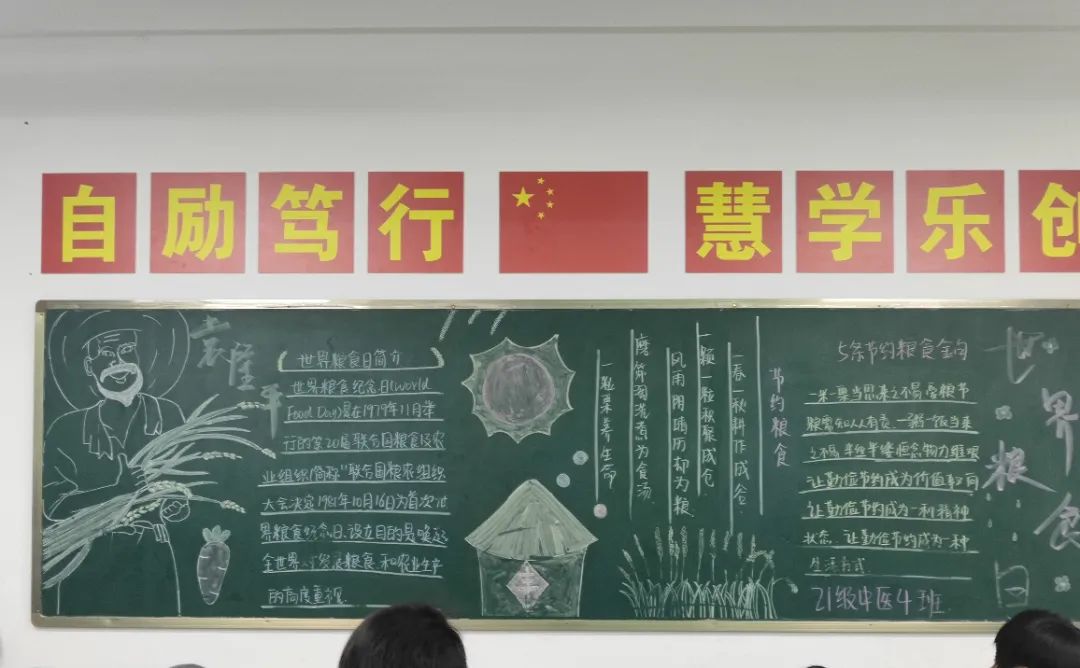 自励笃行 慧学乐创
袁隆平
世界粮食日简介
世界粮食纪念日(World
Food Day)是在1979年11月举
行的第20届联合国粮食及农
业组织(简称“联合国粮农组织
大会决定1981年10月16日为首次世
界粮食纪念日.设立目的是唤起
全世界对发展粮食和农业生产
的高度重视.
节约粮食
一春一秋耕作成谷
一颗一粒积聚成仓
风雨阴晴历却为粮
煮为食汤
一粒粟养生命
5条节约粮食金句
一米一粟当思来之不易爱粮节
粮需知人人有责 一粥一饭当来
之不易 半丝半缕恒念物力维艰
让勤俭节约成为价值取向
让勤俭节约成为一种精神
状态 让勤俭节约成为一种
生活方式
21级中医4班
世界粮食日